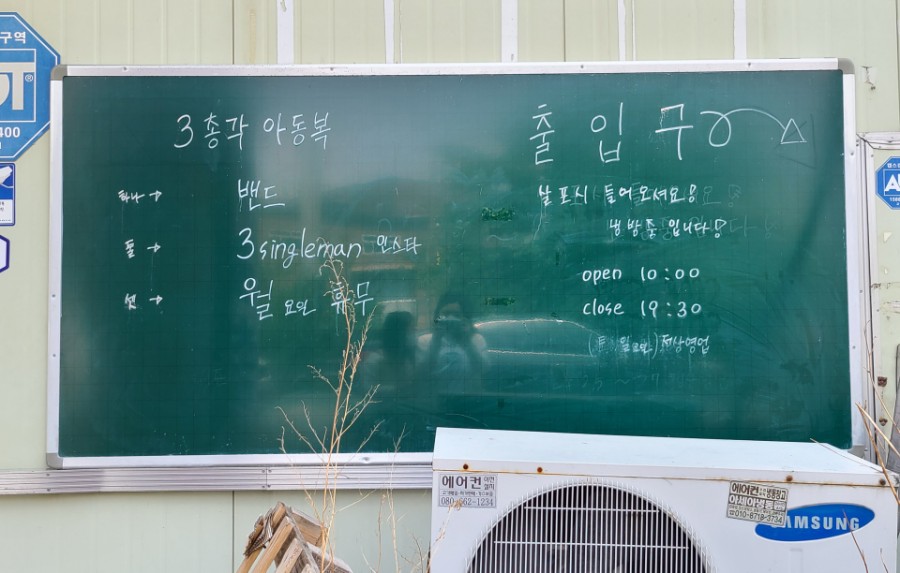 구역
400
3총각 아동복
하나→ 밴드
둘→ 3singleman 인스타
셋→ 월요일 휴무
출입구
들어오셔요
냉방중입니다!
open 10:00
close 19:30
(토 일요일) 정상영업
에어컨
080-662-1234
에어컨
010-8719-3734
SAMSUNG